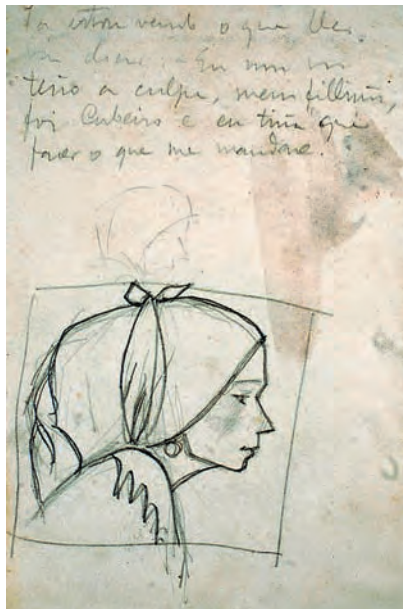 Ja estou vendo o que lle
vou dicir. Eu non
teño a culpa, meu filliño,
foi Cabeiro e eu tiña que
facer o que me mandane.